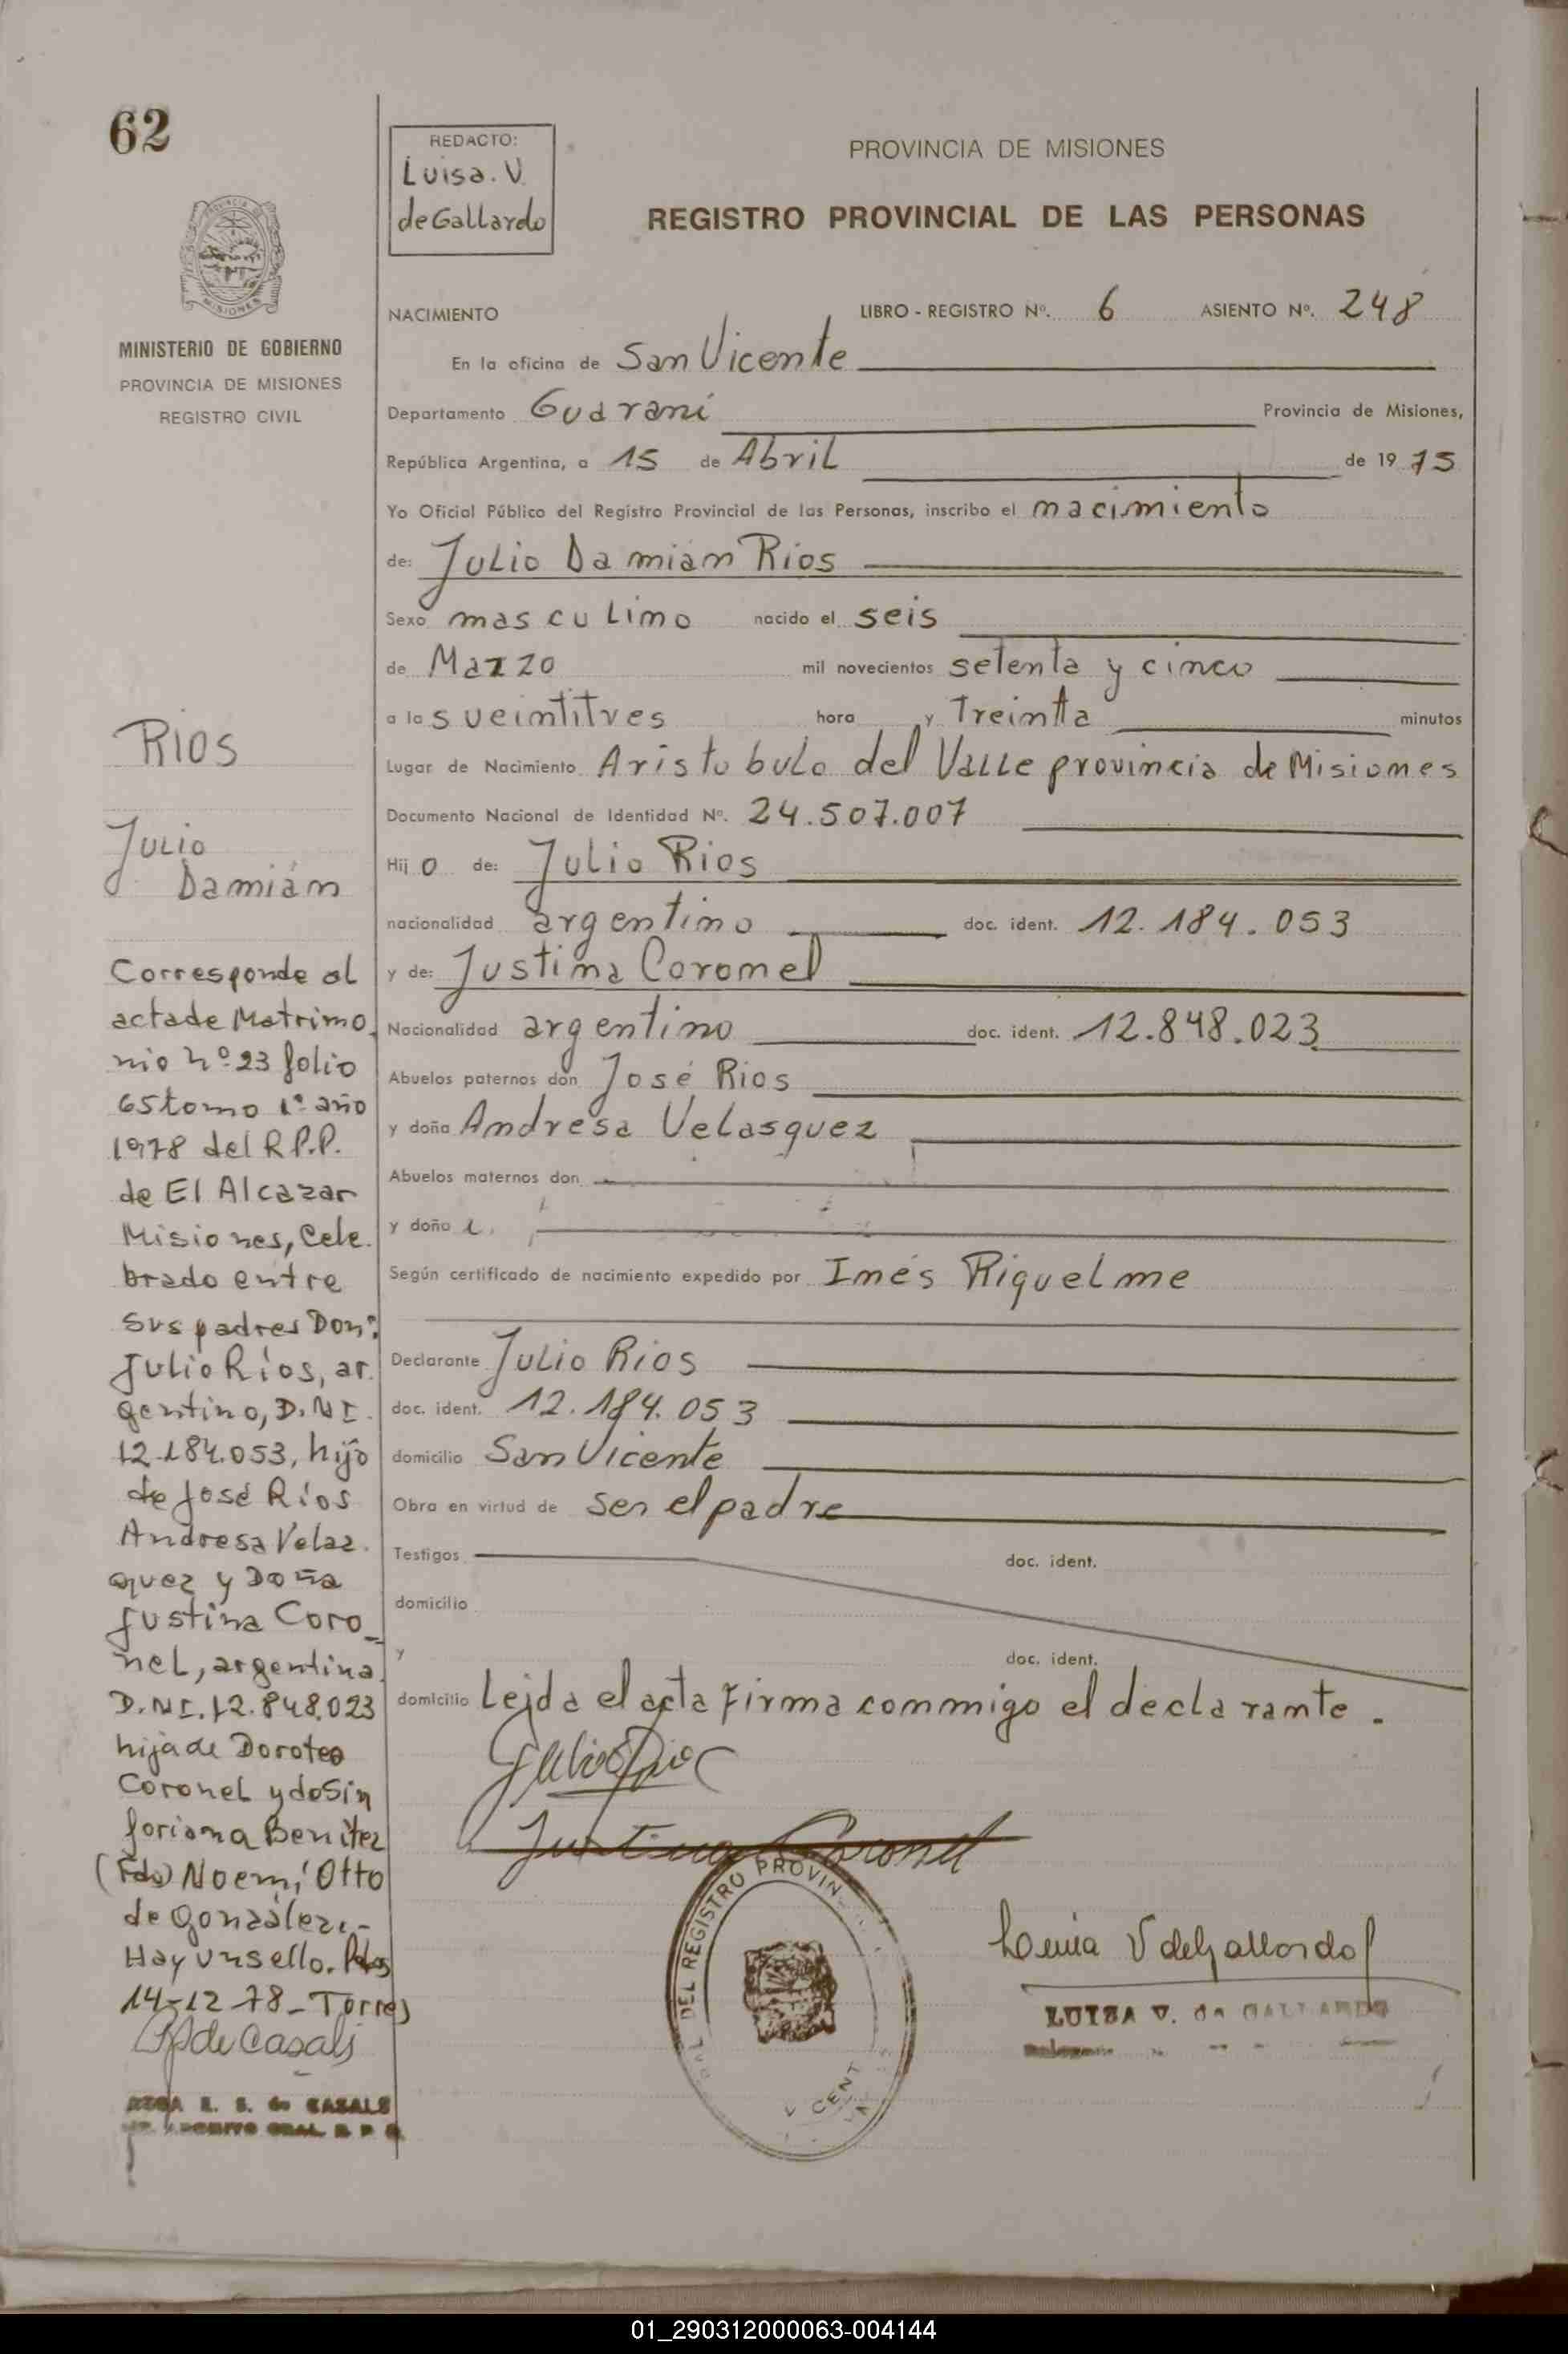 62
REDACTO:
Luisa. V.
de Gallardo
PROVINCIA DE MISIONES
REGISTRO PROVINCIAL DE LAS PERSONAS
MINISTERIO DE GOBIERNO
PROVINCIA DE MISIONES
REGISTRO CIVIL
NACIMIENTO LIBRO - REGISTRO Nº. 6 ASIENTO Nº. 248
En la oficina de San Vicente
Departamento Guaraní Provincia de Misiones,
República Argentina, a 15 de Abril de 19 75
Yo Oficial Público del Registro Provincial de las Personas, inscribo el nacimiento
de: Julio Damián Rios
Sexo masculino nacido el seis
de Marzo mil novecientos setenta y cinco
a las veintitres hora y Treinta minutos
Lugar de Nacimiento Aristobulo del Valle provincia de Misiones
Documento Nacional de Identidad Nº. 24.507.007
Hijo de: Julio Rios
nacionalidad argentino doc. ident. 12.184.053
y de: Justina Coronel
Nacionalidad argentino doc. ident. 12.848.023
Abuelos paternos don José Rios
y doña Andresa Velasquez
Abuelos maternos don
y doña
Según certificado de nacimiento expedido por Inés Riquelme
Declarante Julio Rios
doc. ident. 12.184.053
domicilio San Vicente
Obra en virtud de ser el padre
Testigos doc. ident.
domicilio
y doc. ident.
domicilio Leida el acta firma conmigo el declarante.
Julio Rios
Justina Coronel
DEL REGISTRO PROVIN
Luisa V de Gallardo
LUISA V. de GALLARDO
RIOS
Julio
Damián
Corresponde al
acta de Matrimo
nio nº 23 folio
65 tomo 1º año
1978 del R.P.P.
de El Alcazar
Misiones, Cele
brado entre
sus padres Don:
Julio Ríos, ar
gentino, D.N.I.
12.184.053, hijo
de José Ríos
Andresa Velaz
quez y Doña
Justina Coro_
nel, argentina
D.N.I. 12.848.023
hija de Doroteo
Coronel y de Sin
foriana Benitez
(Fdo) Noemí Otto
de González.-
Hay un sello. Pdas
14-12-78- Torres
de Casals
E. S. de CASALS
01_290312000063-004144